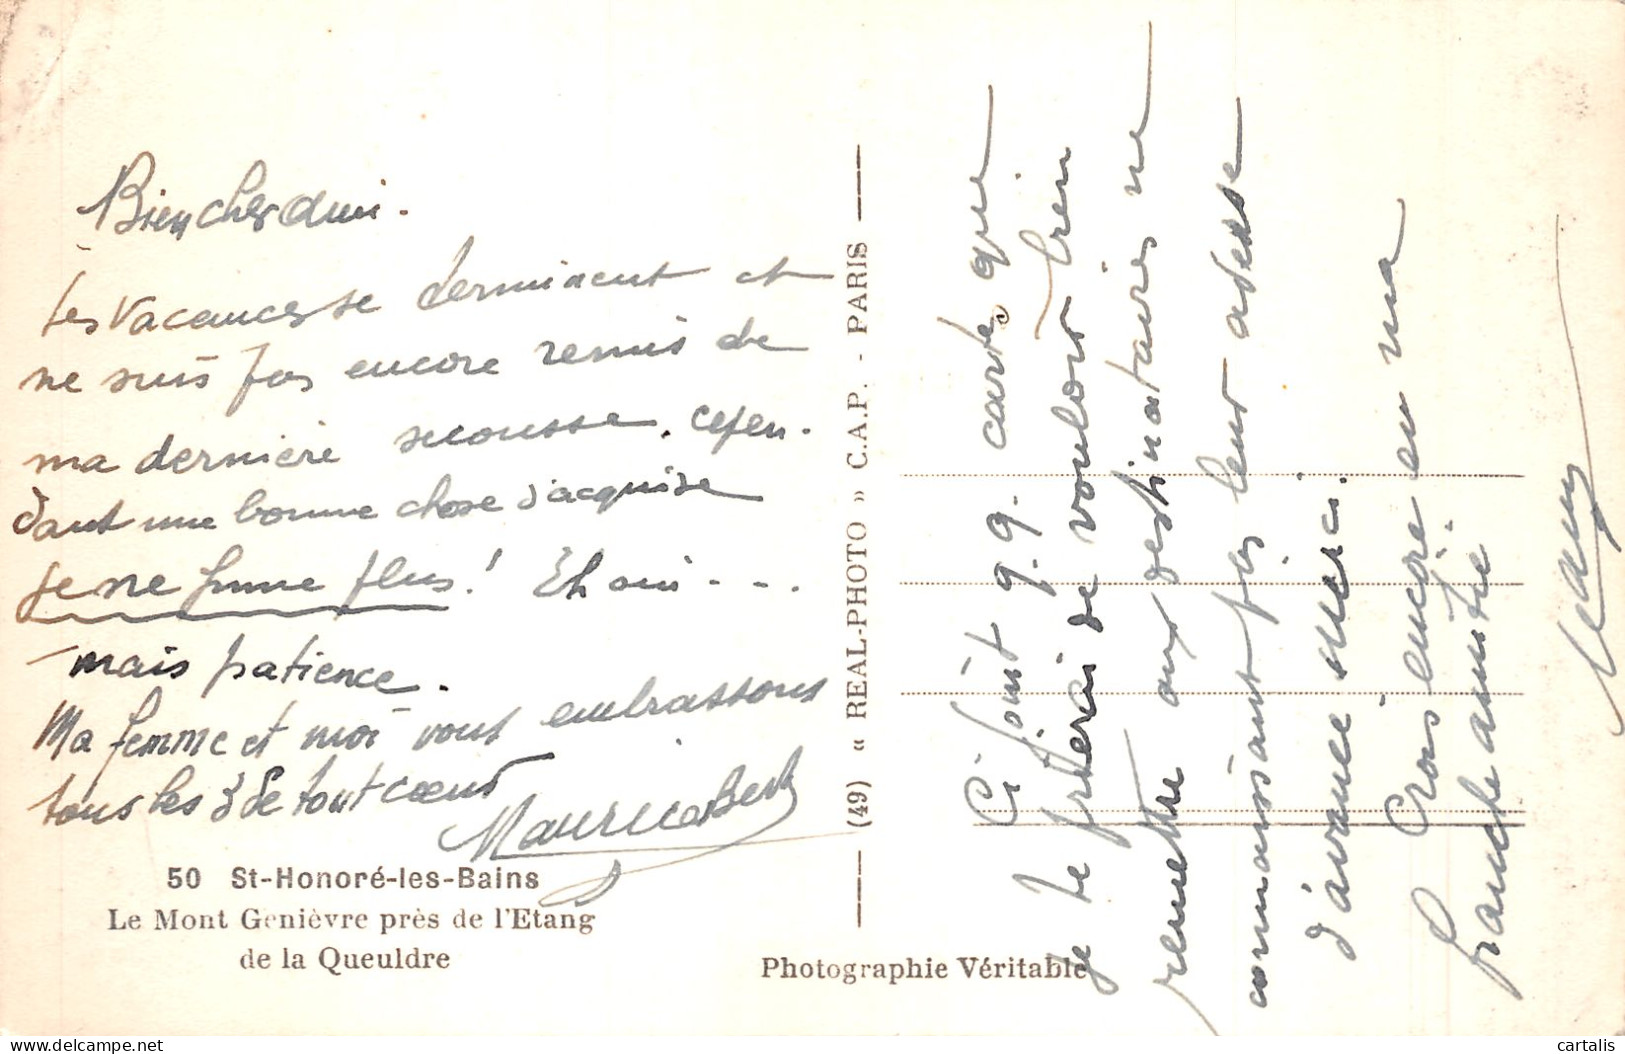 Bien cher ami.
Les vacances se terminent et
ne suis pas encore remis de
ma dernière secousse. Cepen-
dant une bonne chose d'acquise
je ne fume plus! Eh oui - - .
mais patience.
Ma femme et moi vous embrassons
tous les 3 de tout coeur
Maurice
50 St-Honoré-les-Bains
Le Mont Genièvre près de l'Etang
de la Queuldre
(49) « REAL-PHOTO » C.A.P. - PARIS
Photographie Véritable
Ci joint 9.9. carte que
je te prierai de vouloir bien
remettre aux destinataires ne
connaissant pas leur adresse
d'avance merci.
Crois encore en ma
franche amitié
cartalis